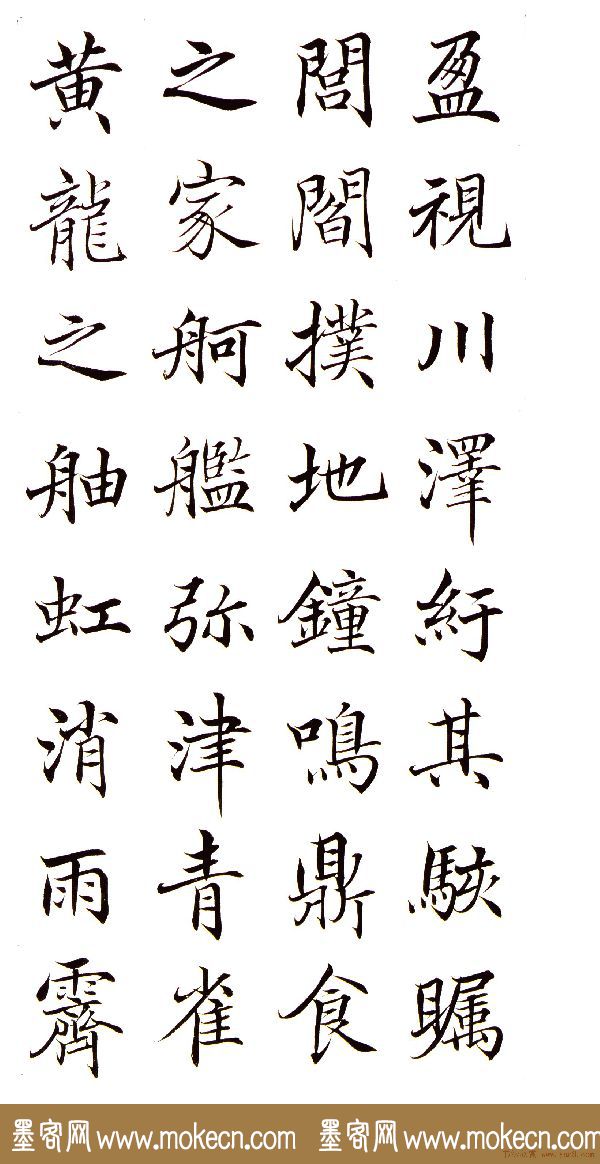 盈視川澤紆其駭瞩
閭閻撲地鐘鳴鼎食
之家舸艦弥津青雀
黄龍之舳虹消雨霽
墨客网 www.mokecn.com 墨客网 www.mokecn.com